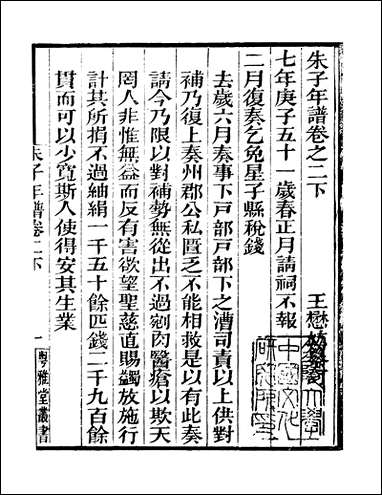 朱子年譜卷之二下
王懋
七年庚子五十一歲春正月請祠不報
二月復奏乞免星子縣稅錢
去歲六月奏事下戶部戶部下之漕司責以上供對
補乃復上奏州郡公私匱乏不能相救是以有此奏
請今乃限以對補勢無從出不過剜肉醫瘡以欺天
罔人非惟無益而反有害欲望聖慈直賜蠲放施行
計其所捐不過紬絹一千五十餘匹錢二千九百餘
貫而可以少寬斯人使得安其生業
朱子年譜卷二下
一
粵雅堂叢書
中國文化
研究所